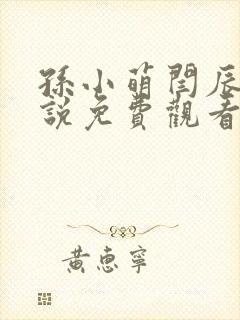 孫小萌閆辰
說免費觀看
黃惠寧